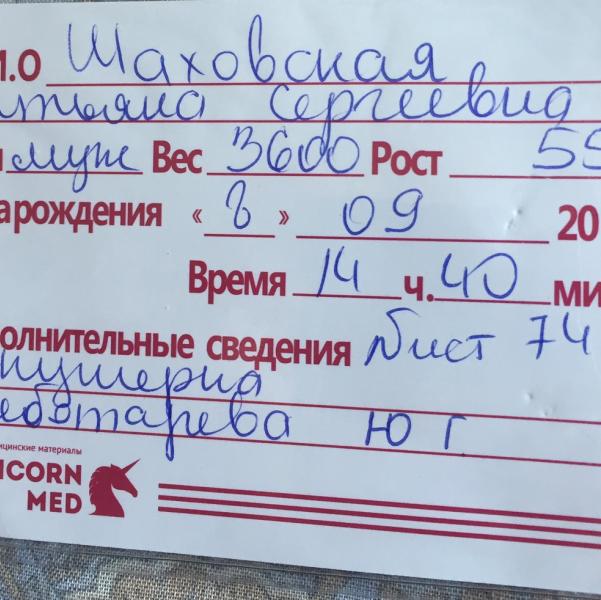 И.О Шаховская
тьяна Сергеевна
муж Вес 3600 Рост 55
а рождения « 8 » 09 20
Время 14 ч. 40 ми
олнительные сведения Лист 74
кушерка
еботарева Ю Г
ицинские материалы
ICORN
MED